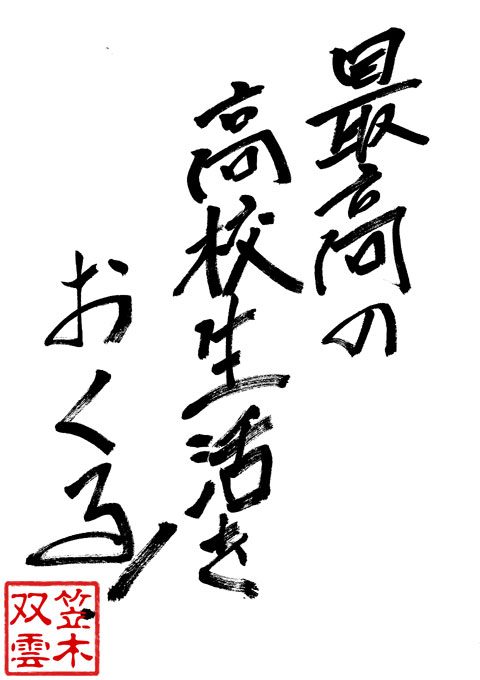 最高の
高校生活を
おくる
笠木
双雲